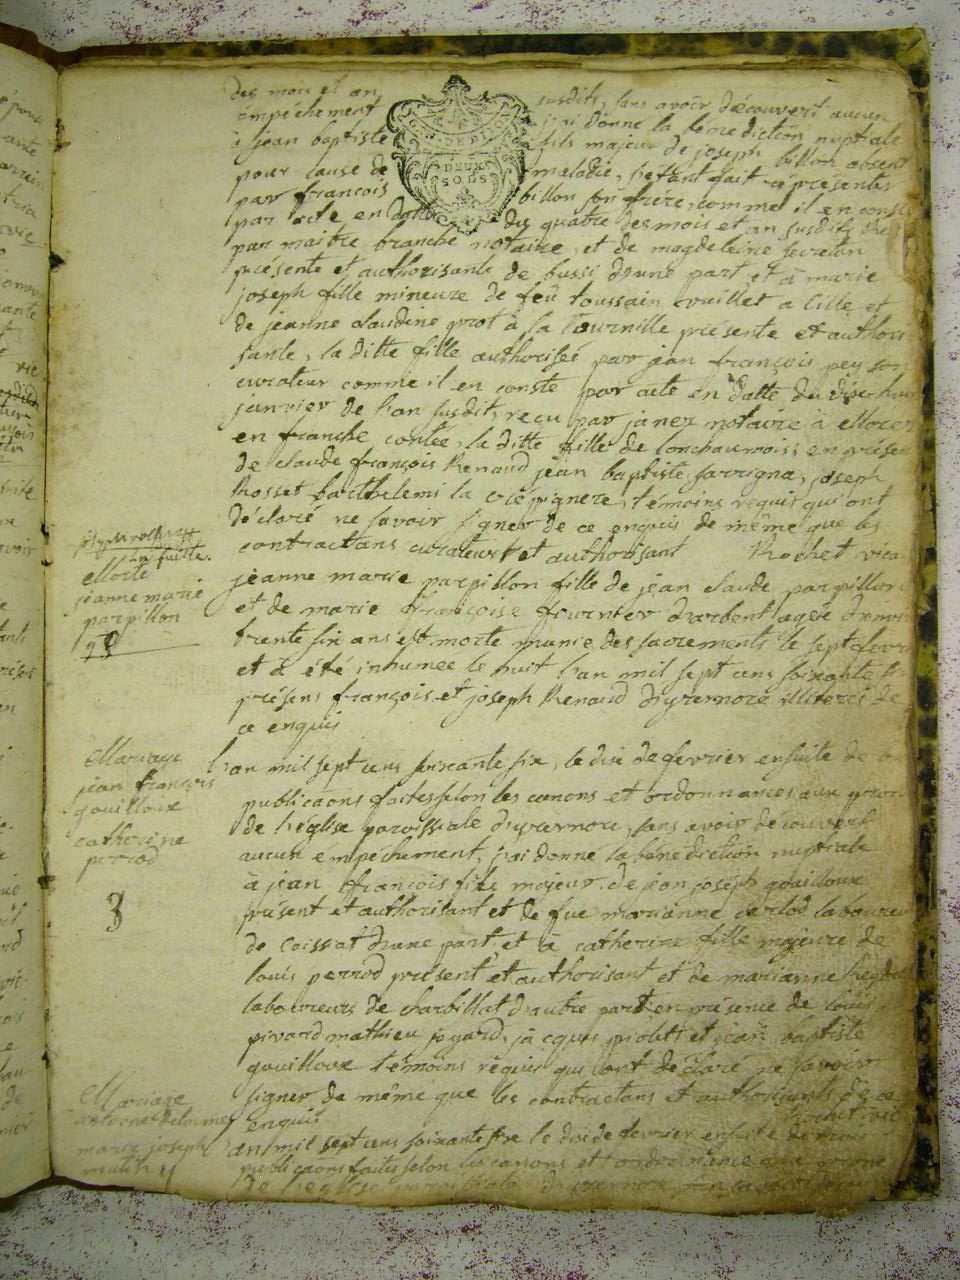 des mois et an susdits, sans avoir découvert aucun
empéchement j'ai donné la bénédiction nuptiale
à jean baptiste fils majeur de joseph billon absent
pour cause de maladie, se fesant représenter
par françois billon son frère, comme il en conste
par acte en datte du quatre des mois et an susdits
DEUX
SOLS
par maitre branche notaire, et de magdeleine
présente et authorisante de bussi d'une part et à marie
joseph fille mineure de feü toussain vuillet a lille et
de jeanne claudine grot à la tournille présente et authori
sante, la ditte fille authorisée par jean françois pey son
curateur comme il en conste par acte en datte du dixhuit
janvier de l'an susdit, reçu par janez notaire à
en franche contée, la ditte fille de lonchaumois; en présen
de claude françois Renaud jean baptiste, joseph
Rosset barthelemi la témoins requis qui ont
déclaré ne savoir signer de ce enquis de même que les
contractans curateur et authorisant Rochet vica
Morte
jeanne marie
parpillon
jeanne marie parpillon fille de jean claude parpillon
et de marie françoise fournier d'arbent agée d'envi
trente six ans est morte munie des sacrements le sept fevri
et à été inhumee le huit l'an mil sept cens soixante
présens françois et joseph Renaud d'uvernore illiterés de
ce enquis
Mariage
jean françois
gouilloux
catherine
perrod
3
L'an mil sept cens soixante six, le dix de fevrier ensuite de
publicaons faites selon les canons et ordonnances aux prone
de l'église paroissiale d'uvernore, sans avoir decouvert
aucun empéchement, j'ai donne la bénédiction nuptiale
à jean françois fils majeur de jean joseph gouilloux
présent et authorisant et de fue marianne laboureur
de Coissat d'une part, et à catherine fille majeure de
louis perrod présent et authorisant et de marianne
laboureurs de charbillat d'autre part en présence de louis
pivard mathieu joyard, jacques piolet et jean baptiste
gouilloux témoins requis qui ont déclaré ne savoir
signer de même que les contractans et authorisants de ce
enquis Rochet vic
Mariage
marie joseph
an mil sept cens soixante six le dix de fevrier ensuite de
publicaons faites selon les canons et ordonnances aux prone
de l'eglise paroissiale d'uvernore